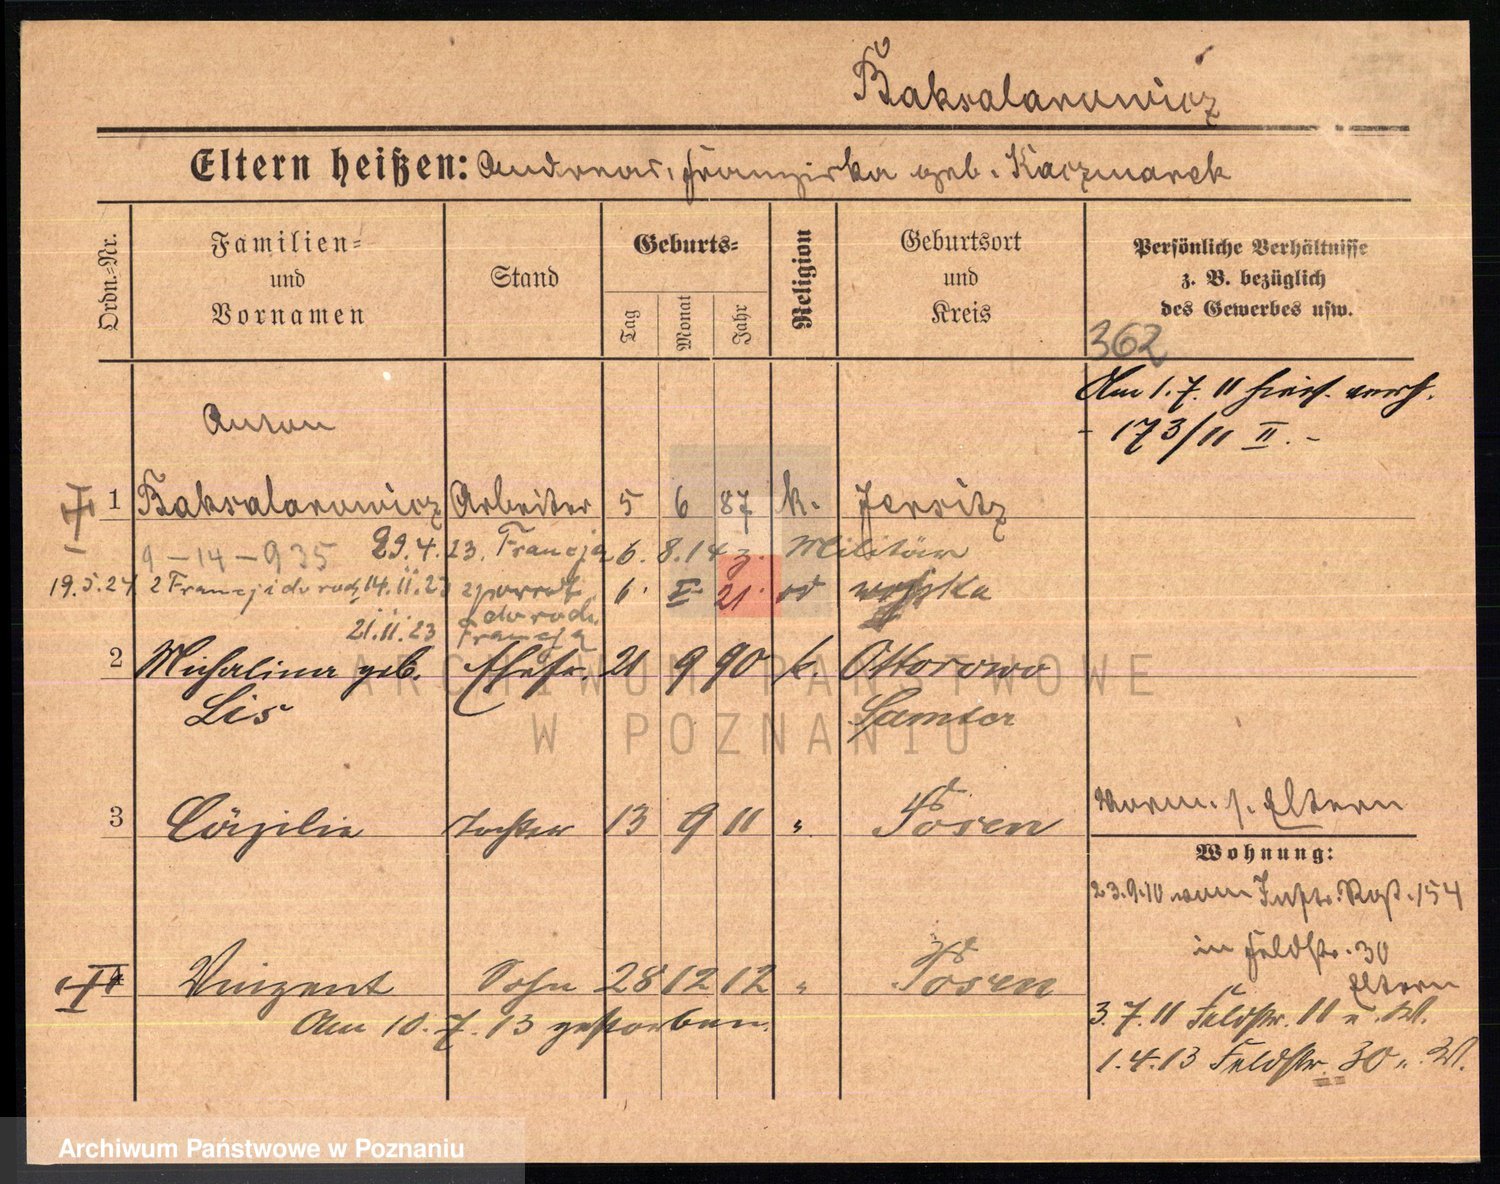 Baksalarowicz
Eltern heißen: Andreas, Franziska geb. Kaczmarek
Ordn.-Nr.
Familien-
und
Vornamen
Stand
Geburts-
Tag
Monat
Jahr
Religion
Geburtsort
und
Kreis
Persönliche Verhältnisse
z. B. bezüglich
des Gewerbes usw.
362
Am 1.7.11 hies. verh.
- 173/11 II. -
Anton
1 Baksalarowicz Arbeiter 5 6 87 k. Jersitz
9-14-935 29.4.23. Francja 6. 8. 14 z. Militär
19.5.24 z Francji do rodz. 14.11.23 z powrot. 6. I 21. od wojska
do rodz.
21.11.23 Francja
2 Michalina geb. Ehefr. 21 9 90 k. Ottorowo
Lis Samter
3 Cäzilie Tochter 13 9 11 " Posen
Vinzent Sohn 28 12 12 " Posen
Am 10. 7. 13 gestorben.
Vorm. s. Eltern
Wohnung:
23.9.10 vom
154
in Feldstr. 30
Eltern
3.7.11 Feldstr. 11 e. W.
1.4.13 Feldstr. 30 e. W.
ARCHIWUM PAŃSTWOWE
W POZNANIU
Archiwum Państwowe w Poznaniu